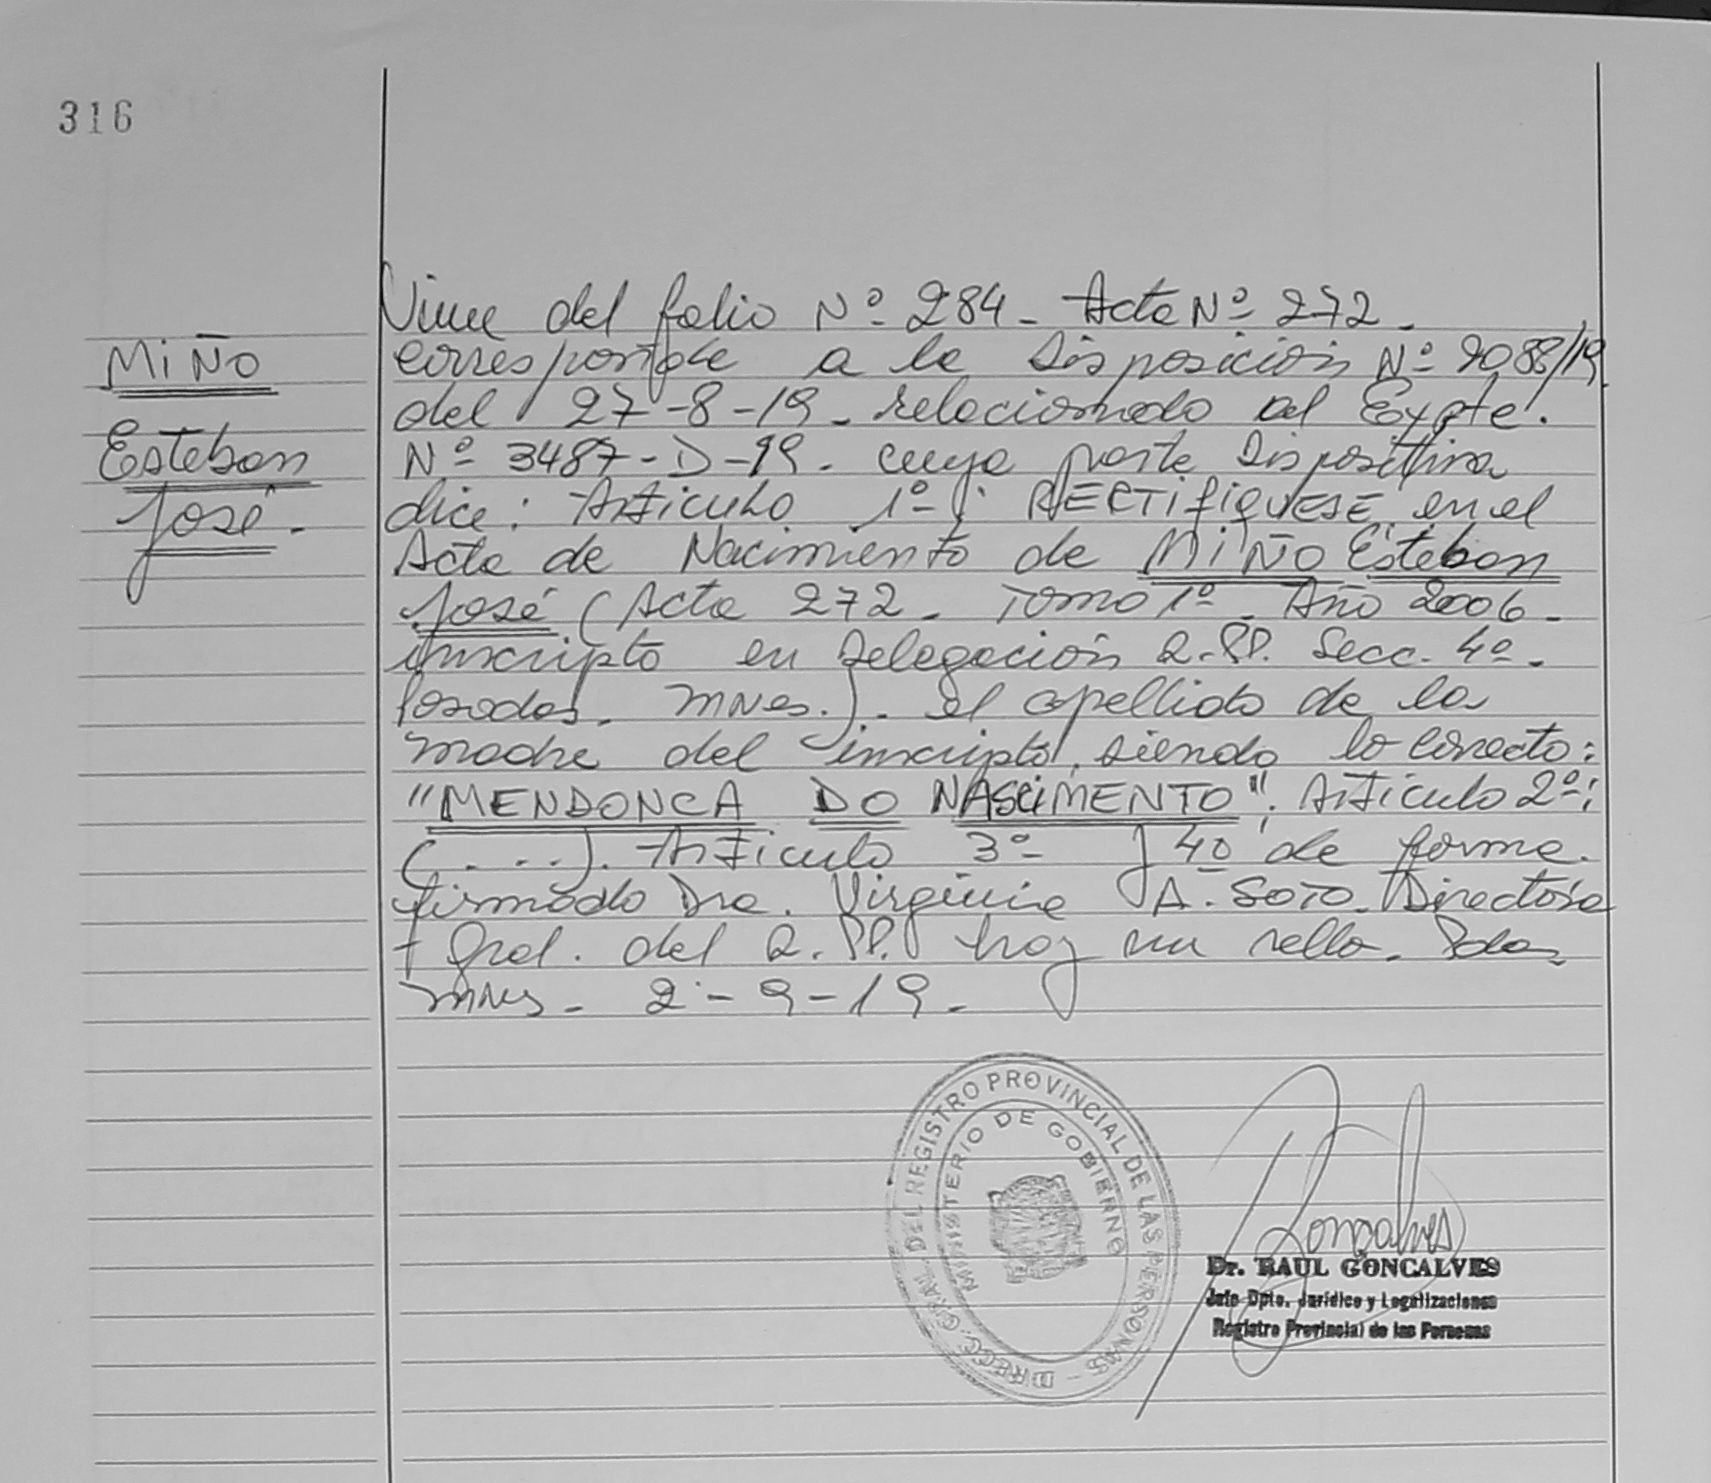 316
MIÑO
Esteban
José.
Viene del folio Nº 284 - Acta Nº 272.
corresponde a la Disposición Nº 2088/19
del 27-8-19. relacionado al Expte.
Nº 3487-D-19. cuya parte Dispositiva
dice: Artículo 1º: RECTIFIQUESE en el
Acta de Nacimiento de MIÑO Esteban
José (Acta 272. Tomo 1º Año 2006.
inscripto en Delegación R.PP. Secc. 4º.
Posadas. Mnes.). el apellido de la
madre del inscripto, siendo lo correcto:
"MENDONCA DO NASCIMENTO". Artículo 2º:
(....). Artículo 3º y 4º de forma.
firmado Dra. Virginia A. SOTO. Directora
Gral. del R.PP. hay un sello. Pdas
Mnes. 2-9-19.
DIRECC. GRAL. DEL REGISTRO PROVINCIAL DE LAS PERSONAS -
MINISTERIO DE GOBIERNO
Gonçalves
Dr. RAUL GONCALVES
Jefe Dpto. Jurídico y Legalizaciones
Registro Provincial de las Personas